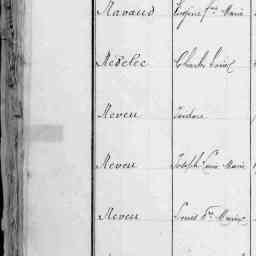 Ravaud Eugène fçois Marie
Redelec Charles Louis
Reveu Isidore
Reveu Joseph Louis Marie
Reveu Louis Fr. Marie